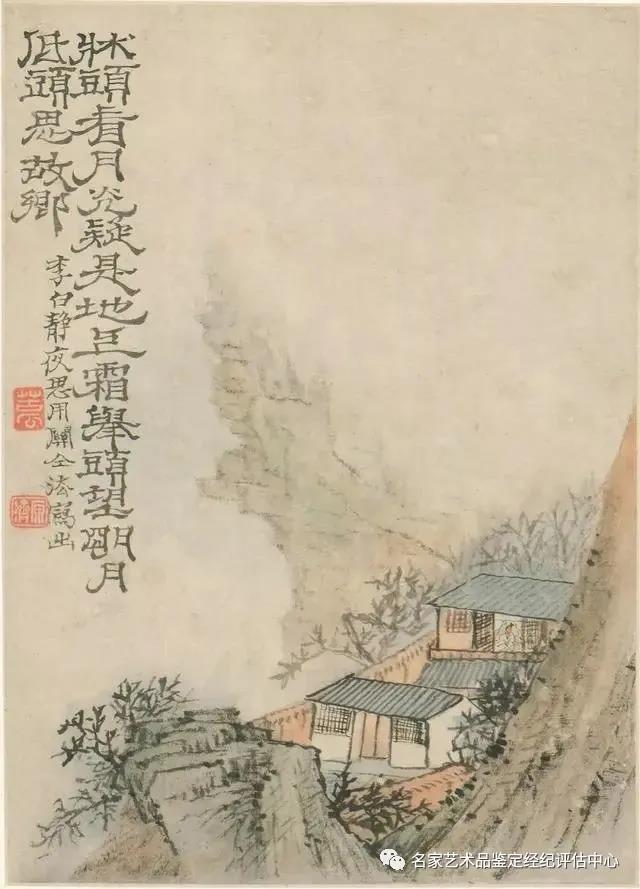 牀頭看月光疑是地上霜舉頭望朙月
低頭思故鄉
李白靜夜思用關仝法寫出
苦瓜
原濟
名家艺术品鉴定经纪评估中心